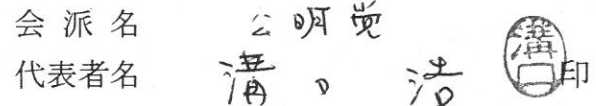 会派名 公明党
代表者名 溝口 浩 溝口 印